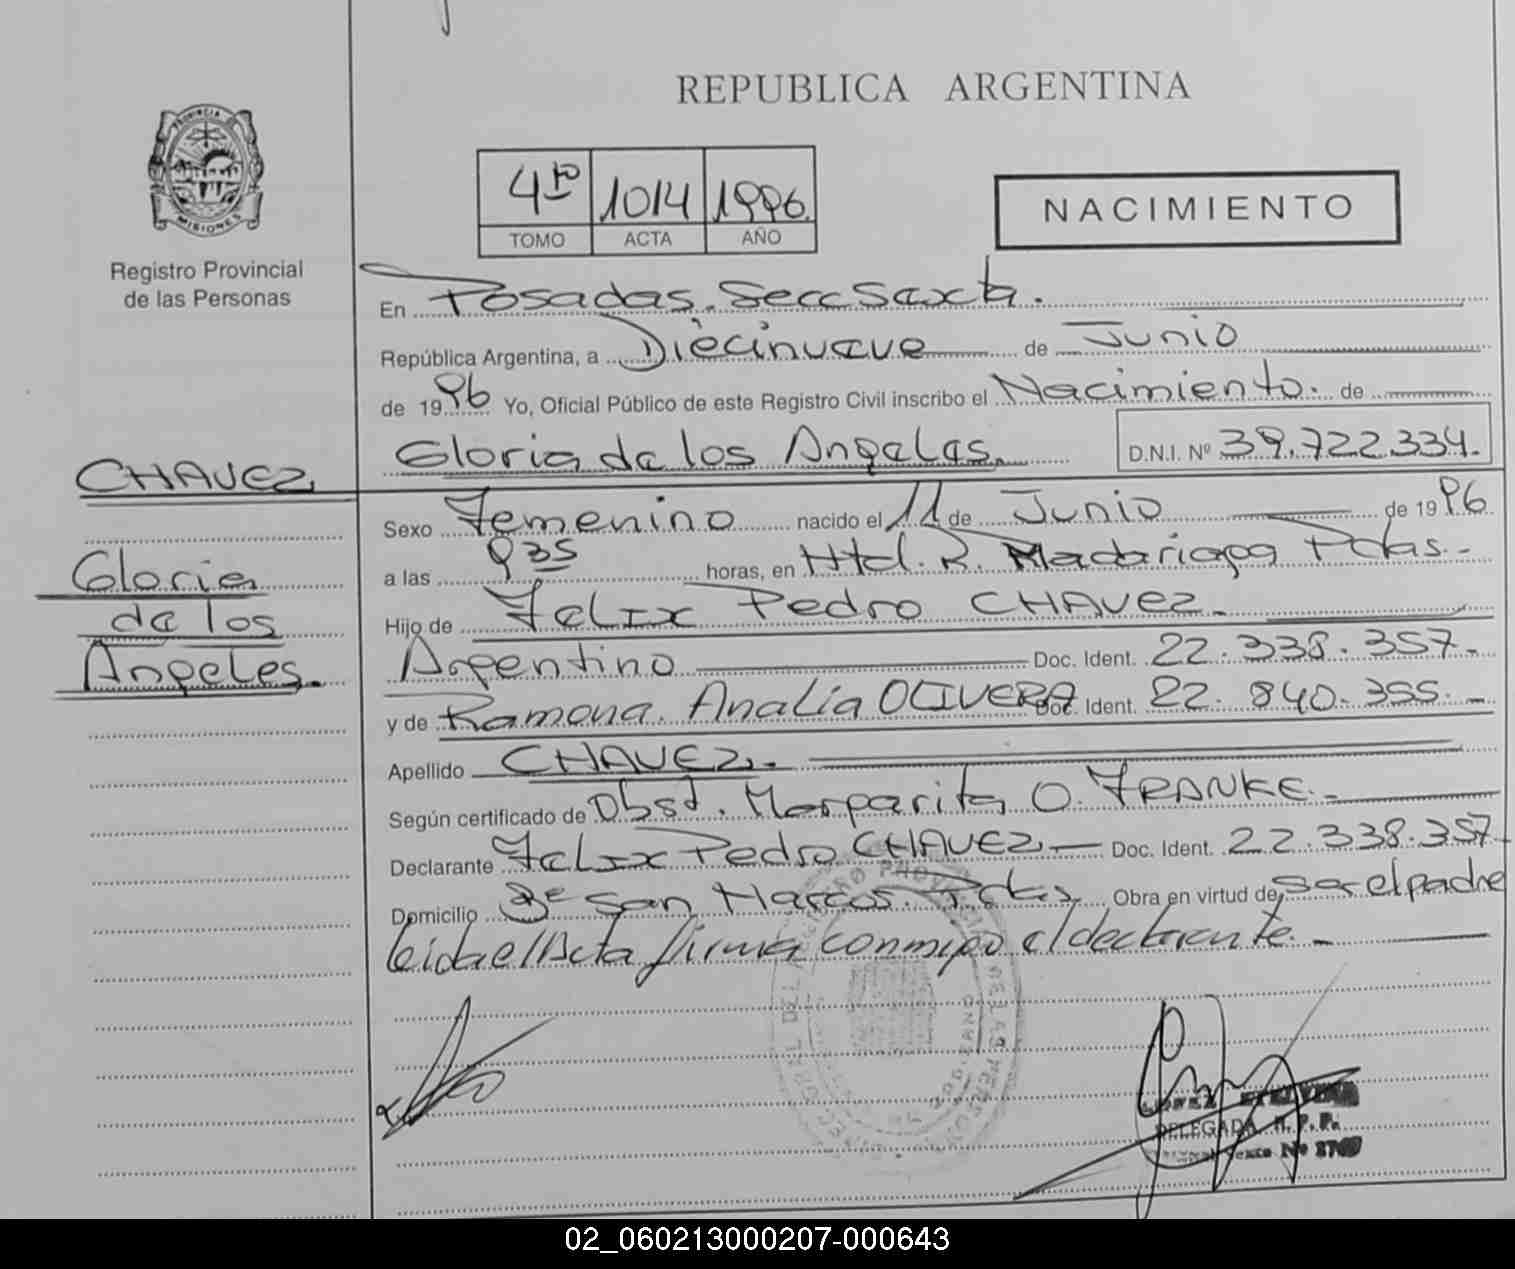 REPUBLICA ARGENTINA
PROVINCIA DE
MISIONES
Registro Provincial
de las Personas
4to 1014 1996.
TOMO ACTA AÑO
NACIMIENTO
En Posadas. Secc Sexta.
República Argentina, a Diecinueve de Junio
de 1996 Yo, Oficial Público de este Registro Civil inscribo el Nacimiento. de
Gloria de los Angeles. D.N.I. Nº 39.722.334.
CHAVEZ
Gloria
de los
Angeles.
Sexo Femenino nacido el 11 de Junio de 1996
a las 935 horas, en Htal. R. Madariaga Pdas.-
Hijo de Felix Pedro CHAVEZ.
Argentino Doc. Ident. 22.338.357.-
y de Ramona Analia OLIVERA Doc. Ident. 22.840.355.-
Apellido CHAVEZ.
Según certificado de Obst. Margarita O. FRANKE.-
Declarante Felix Pedro CHAVEZ- Doc. Ident. 22.338.357.-
Domicilio Bº San Marcos. Pdas, Obra en virtud de, ser el padre
leida el Acta firma conmigo el declarante.-
LOPEZ
DELEGADA R. P. P.
02_060213000207-000643